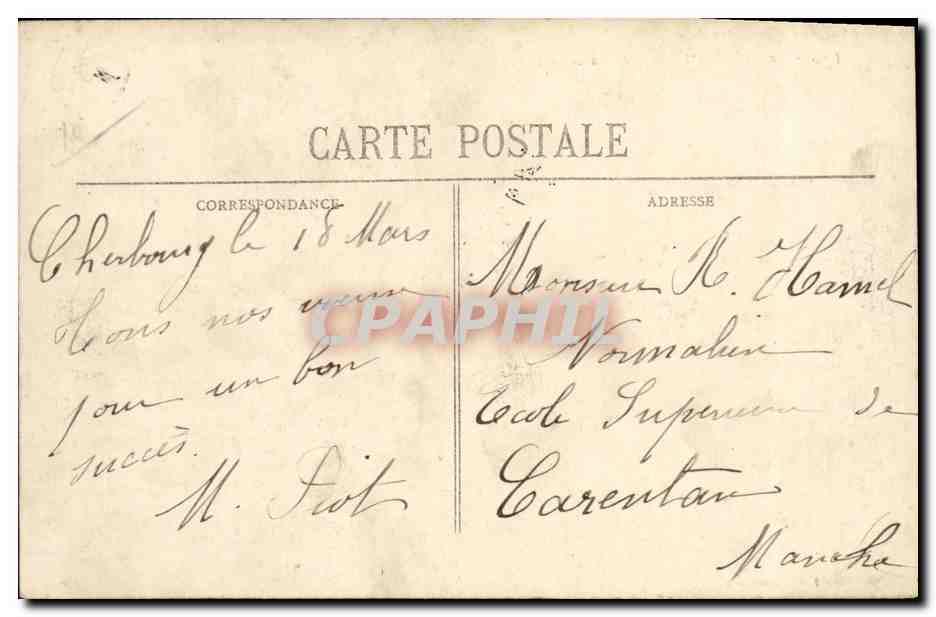 CARTE POSTALE
CORRESPONDANCE
ADRESSE
Cherbourg le 18 Mars
Tous nos vœux
pour un bon
succès.
M. Piot
Monsieur R. Hamel
Normalien
Ecole Superieure de
Carentan
Manche
CPAPHIL